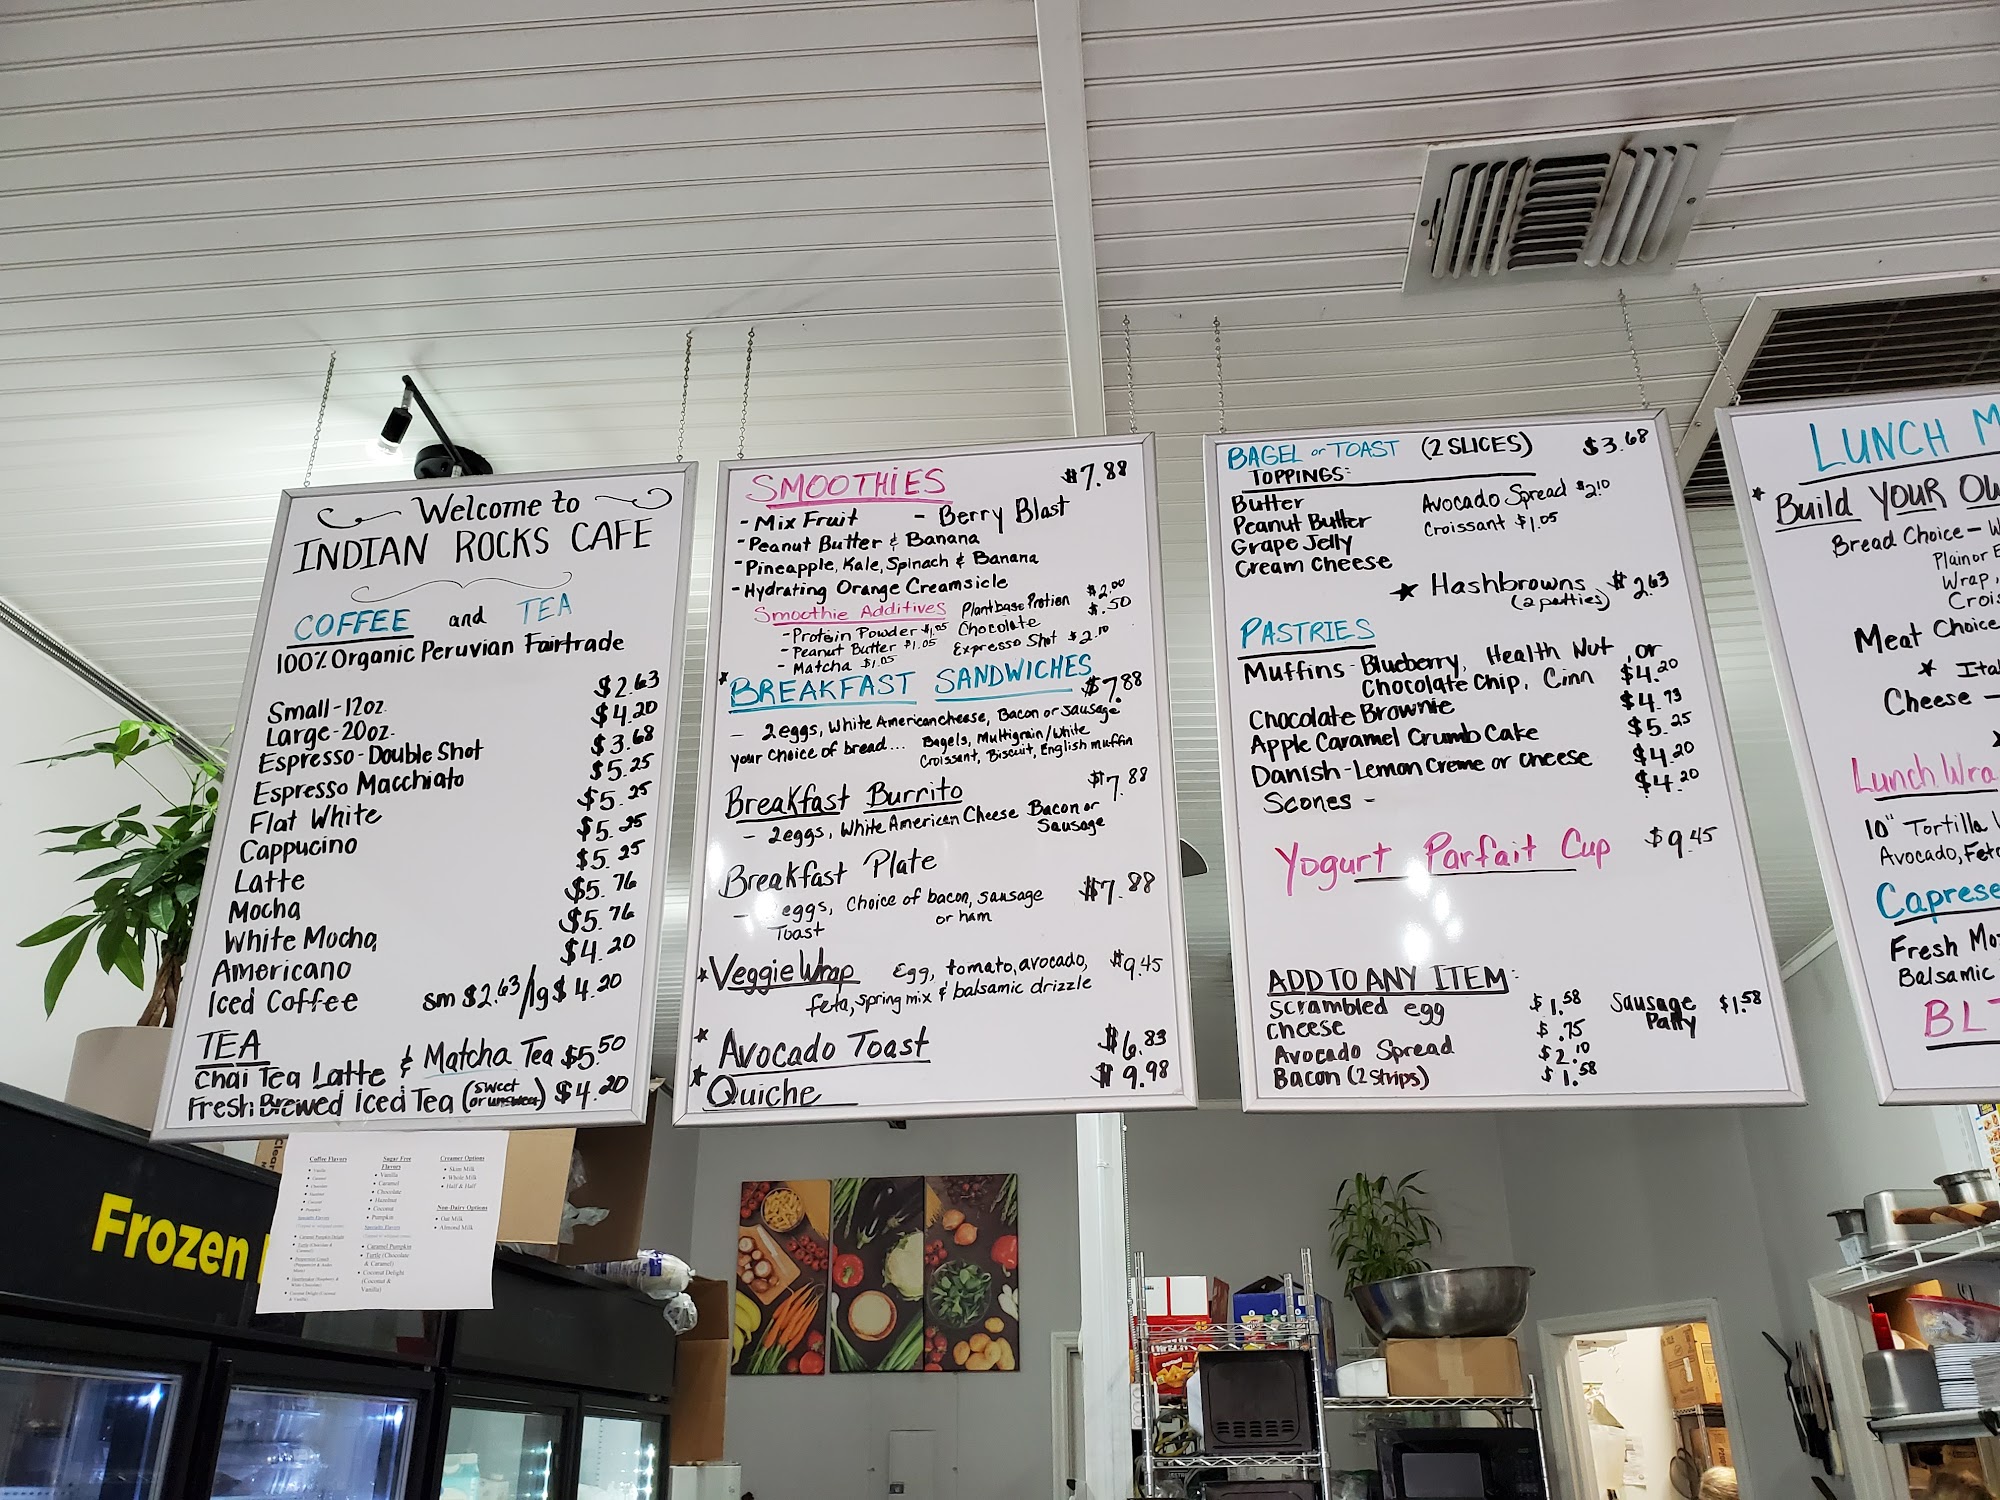 Welcome to
INDIAN ROCKS CAFE
COFFEE and TEA
100% Organic Peruvian Fairtrade
Small-12oz. $2.63
Large-20oz. $4.20
Espresso-Double Shot $3.68
Espresso Macchiato $5.25
Flat White $5.25
Cappucino $5.25
Latte $5.25
Mocha $5.76
White Mocha $5.76
Americano $4.20
Iced Coffee sm $2.63/lg $4.20
TEA
Chai Tea Latte & Matcha Tea $5.50
Fresh Brewed Iced Tea (sweet $4.20
SMOOTHIES $7.88
- Mix Fruit - Berry Blast
- Peanut Butter & Banana
- Pineapple, Kale, Spinach & Banana
- Hydrating Orange Creamsicle
Smoothie Additives Plantbase Protien $2.00
- Protein Powder $1.05 Chocolate $.50
- Peanut Butter $1.05 Expresso Shot $2.10
- Matcha $1.05
★ BREAKFAST SANDWICHES $7.88
- 2eggs, White American cheese, Bacon or sausage
your choice of bread... Bagels, Multigrain/White
Croissant, Biscuit, English muffin
Breakfast Burrito $7.88
- 2eggs, White American Cheese Bacon or
Sausage
Breakfast Plate $7.88
- eggs, Choice of bacon, sausage
or ham
Toast
★ Veggie Wrap Egg, tomato, avocado, $9.45
feta, spring mix & balsamic drizzle
★ Avocado Toast $6.83
★ Quiche $9.98
BAGEL or TOAST (2 SLICES) $3.68
TOPPINGS:
Butter Avocado Spread $2.10
Peanut Butter Croissant $1.05
Grape Jelly
Cream Cheese
★ Hashbrowns $2.63
(2 patties)
PASTRIES
Muffins - Blueberry, Health Nut, or
Chocolate Chip, Cinn $4.20
Chocolate Brownie $4.73
Apple Caramel Crumb Cake $5.25
Danish-Lemon Creme or cheese $4.20
Scones - $4.20
Yogurt Parfait Cup $9.45
ADD TO ANY ITEM:
Scrambled egg $1.58 Sausage $1.58
Patty
cheese $.75
Avocado Spread $2.10
Bacon (2 strips) $1.58
LUNCH M
★ Build YOUR
Bread Choice -
Plain or
Wrap,
Crois
Meat Choice
★ Ital
Cheese -
Lunch Wra
10" Tortilla
Avocado, Fet
Caprese
Fresh Mo
Balsamic
BL
Frozen
Coffee Flavors
Sugar Free
Flavors
• Vanilla
• Caramel
• Chocolate
• Hazelnut
• Coconut
• Pumpkin
• Caramel Pumpkin
• Turtle (Chocolate
& Caramel)
• Coconut Delight
(Coconut &
Vanilla)
Creamer Options
• Skim Milk
• Whole Milk
• Half & Half
Non-Dairy Options
• Oat Milk
• Almond Milk